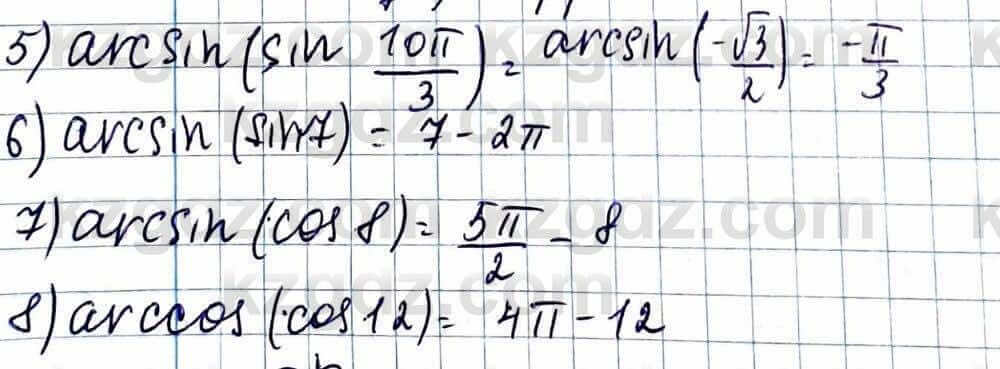 5) arcsin(sin 10π/3) = arcsin(-√3/2) = -π/3
6) arcsin(sin 7) = 7 - 2π
7) arcsin(cos 8) = 5π/2 - 8
8) arccos(cos 12) = 4π - 12